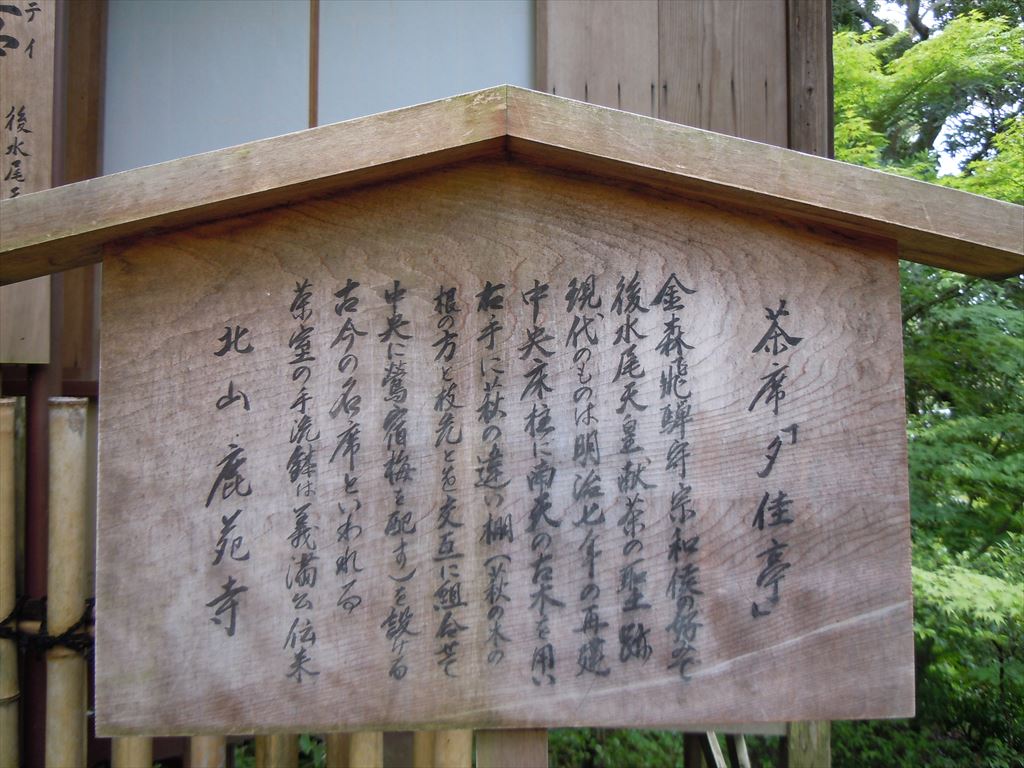 茶席「夕佳亭」
金森飛騨守宗和侯の好みで
後水尾天皇献茶の聖跡
現代のものは明治七年の再建
中央床柱に南天の古木を用い
右手に萩の違い棚(萩の木の
根の方と枝先とを交互に組合せて
中央に鶯宿梅を配す)を設ける
古今の名席といわれる
茶室の手洗鉢は義満公伝来
北山 鹿苑寺
テイ
後水尾天